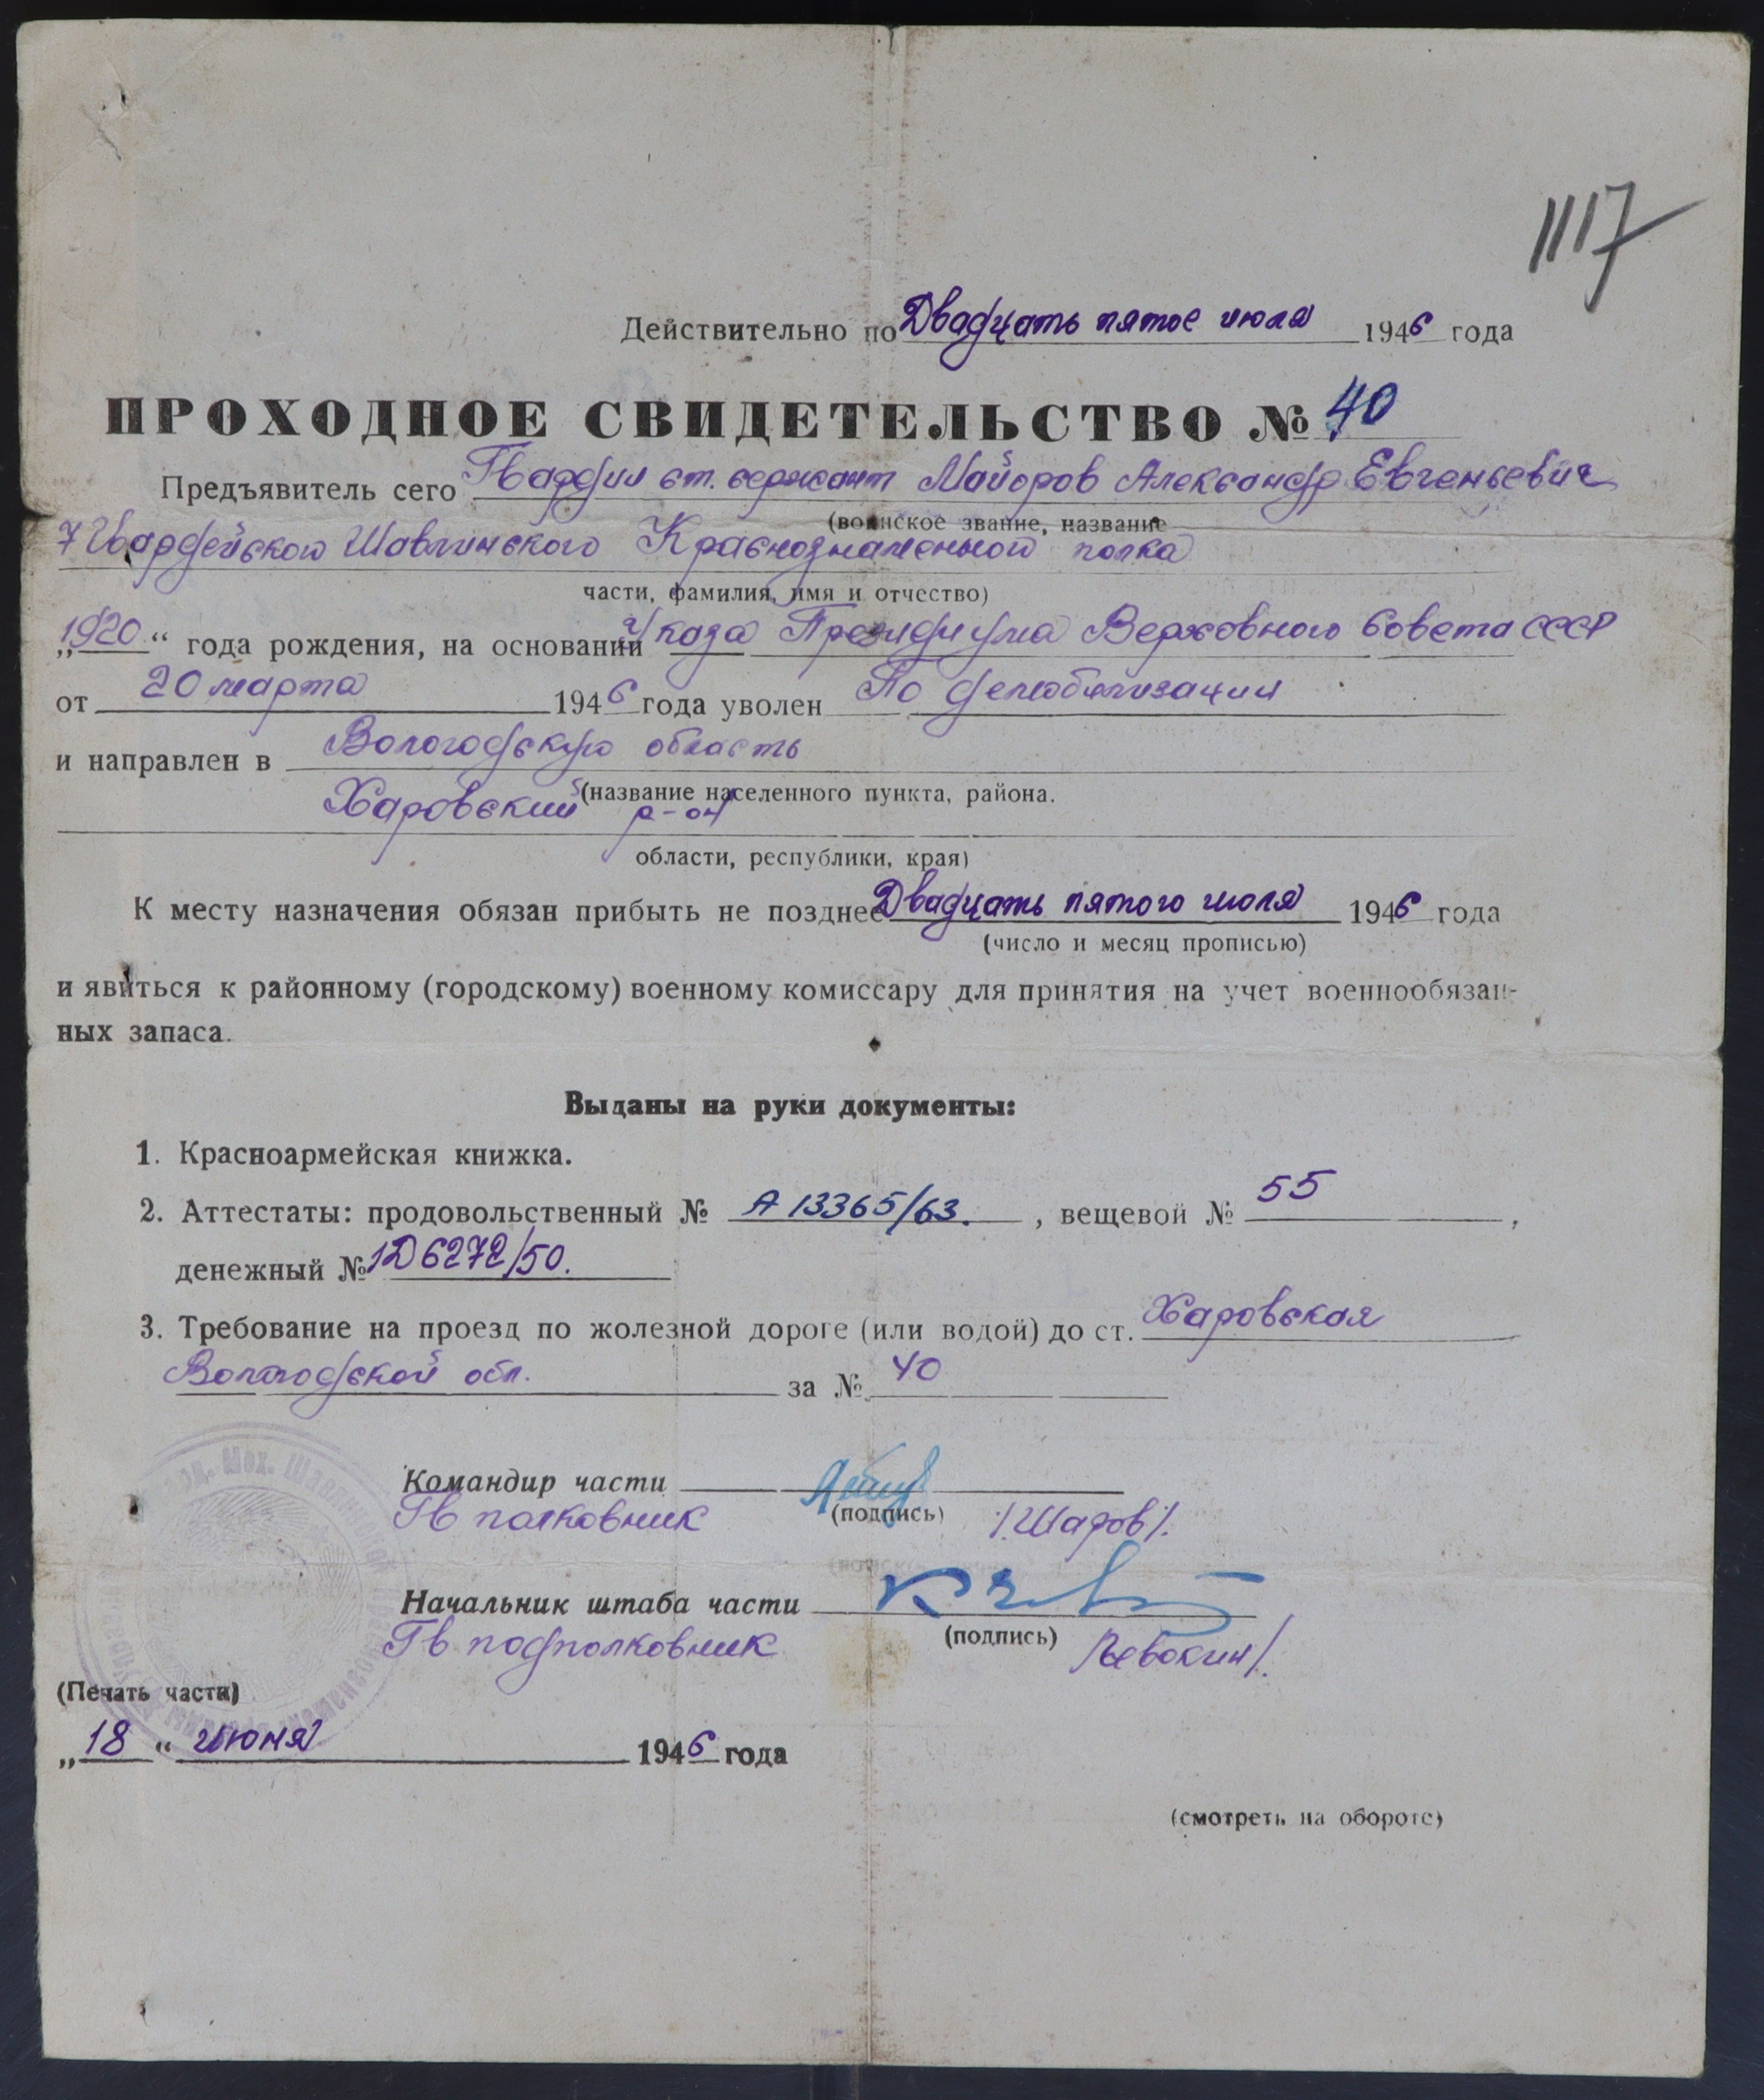 1117
Действительно по Двадцать пятое июля 1946 года
ПРОХОДНОЕ СВИДЕТЕЛЬСТВО № 40
Предъявитель сего Гвардии ст. сержант Майоров Александр Евгеньевич
(воинское звание, название
7 Гвардейского Шавлинского Краснознаменного полка
части, фамилия, имя и отчество)
„1920“ года рождения, на основании Указа Президиума Верховного Совета СССР
от 20 марта 1946 года уволен По демобилизации
и направлен в Вологодскую область
(название населенного пункта, района.
Харовский р-он
области, республики, края)
К месту назначения обязан прибыть не позднее Двадцать пятого июля 1946 года
(число и месяц прописью)
и явиться к районному (городскому) военному комиссару для принятия на учет военнообязан-
ных запаса.
Выданы на руки документы:
1. Красноармейская книжка.
2. Аттестаты: продовольственный № А 13365/63. , вещевой № 55 ,
денежный № 1Д6272/50.
3. Требование на проезд по жолезной дороге (или водой) до ст. Харовская
Вологодской обл. за № 40
Командир части
Гв полковник (подпись) /Шаров/.
Начальник штаба части
Гв подполковник (подпись) /Евокин/.
(Печать части)
„18“ июня 1946 года
(смотреть на обороте)